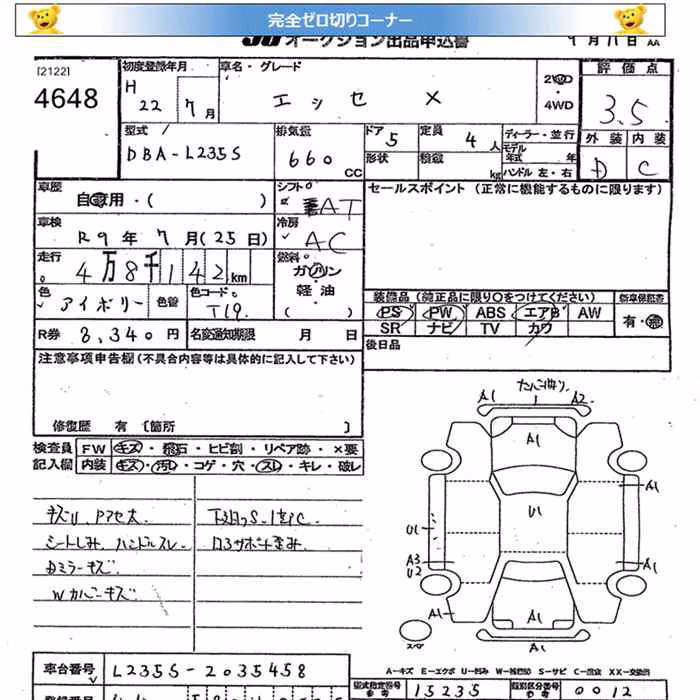 完全ゼロ切りコーナー
JU オークション出品申込書 9月11日 AA
[2122]
4648
初度登録年月 車名・グレード 評価点
H 22 年 7 月 エッセ X 2WD ・ 4WD 3.5
型式 排気量 ドア 5 定員 4 人 ディーラー・並行 外装 内装
DBA-L235S 660 CC 形状 積載 kg モデル年式 年 ハンドル 左・右 D C
車歴 シフト セールスポイント (正常に機能するものに限ります)
自家用・( ) AT
車検 冷房
R9 年 7 月(25 日) AC
走行 燃料
4万8千142 km ガソリン・軽油 ( )
色 色コード 装備品 (純正品に限り○をつけてください) 新車保証書
アイボリー 色替 T19 PS PW ABS エアB AW 有・無
SR ナビ TV カワ
R券 8,340 円 名変通知期限 月 日 後日品
注意事項申告欄 (不具合内容等は具体的に記入して下さい)
修復歴 有 〔箇所 〕
検査員 FW キズ・飛石・ヒビ割・リペア跡・×要
記入欄 内装 キズ・汚レ・コゲ・穴・スレ・キレ・破レ
キズU、Pアセ大
シートしみ、ハンドルスレ
Dミラーキズ
Wカバーキズ
ロアサポート歪み
A1 A2
A1
A1
U1
U1
A3
U2
A1
A1
A1
A1
スペア
車台番号 L235S-2035458
A-キズ E-エクボ U-凹み W-補修跡 S-サビ C-腐食 XX-交換済
型式指定番号 参考 15235 類別区分番号 参考 0012